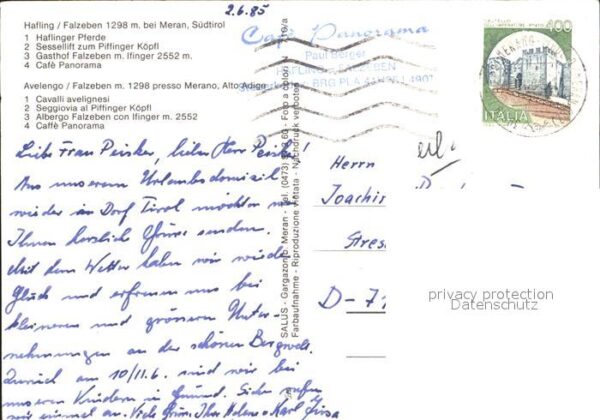 2.6.85
Hafling / Falzeben 1298 m. bei Meran, Südtirol
1 Haflinger Pferde
2 Sessellift zum Piffinger Köpfl
3 Gasthof Falzeben m. Ifinger 2552 m.
4 Cafè Panorama
Avelengo / Falzeben m. 1298 presso Merano, Alto Adige
1 Cavalli avelignesi
2 Seggiovia al Piffinger Köpfl
3 Albergo Falzeben con Ifinger m. 2552
4 Caffè Panorama
Liebe Frau Peisker, lieber Herr Peisker!
Aus unserem Urlaubsdomizil
wieder in Dorf Tirol möchten wir
Ihnen herzliche Grüße senden.
Mit dem Wetter haben wir wieder
Glück und erfreuen uns bei
kleineren und grösseren Unter-
nehmungen an der schönen Bergwelt.
Zurück am 10/11.6. sind wir bei
unseren Kindern in Gmünd. Sie rufen
wir einmal an. Viele Grüße Ihre Helene + Karl
SALUS - Gargazone Meran - Tel. (0473) - Foto a colori
Farbaufnahme - Riproduzione vietata - Nachdruck verboten
Café Panorama
Paul Berger
HAFLING - FALZEBEN
400
ITALIA
Herrn
Joachim
D-7
privacy protection
Datenschutz